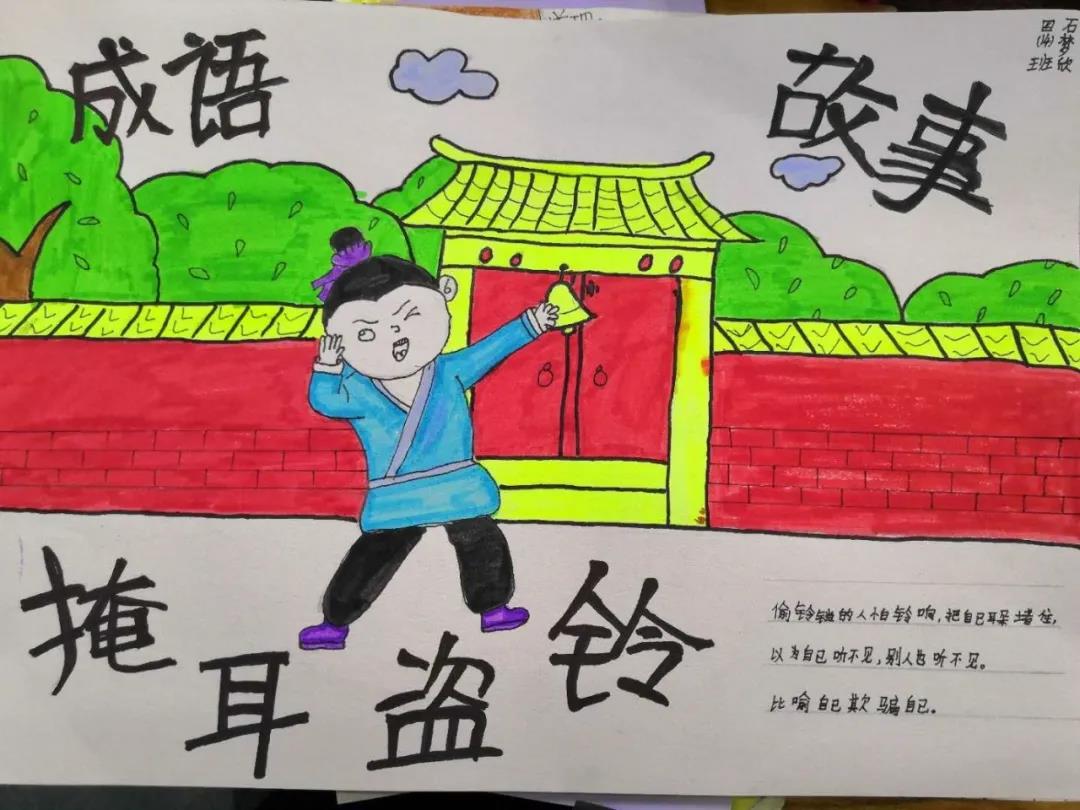 成语
故事
石梦欣
四(14)班
掩耳盗铃
偷铃铛的人怕铃响,把自己耳朵堵住,
以为自己听不见,别人也听不见。
比喻自己欺骗自己。